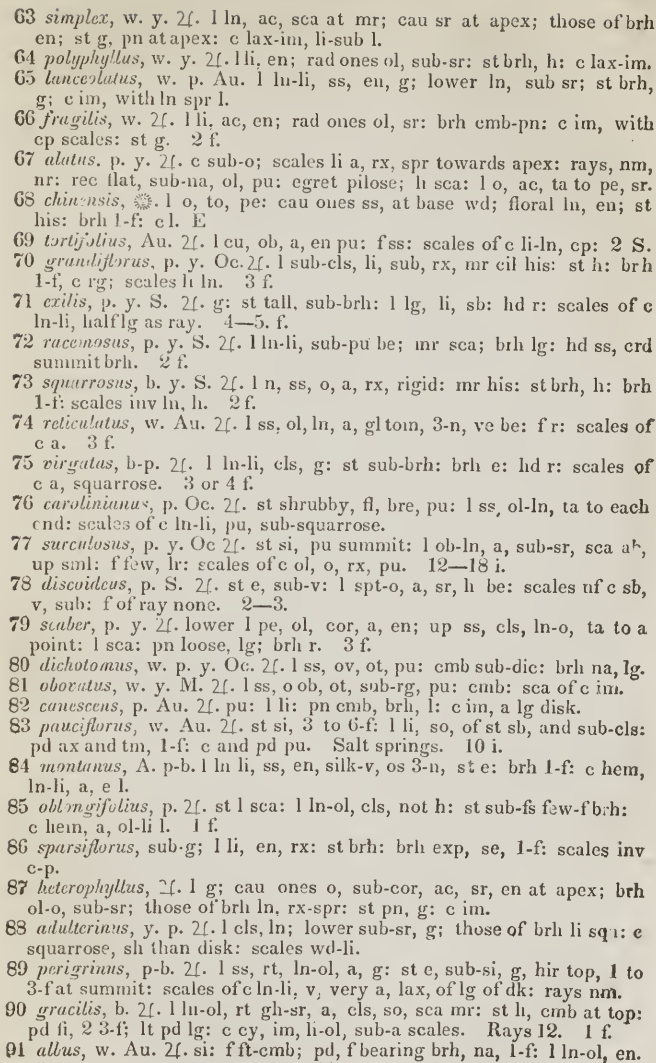 63 simplex, w. y. ♃. l ln, ac, sca at mr; cau sr at apex; those of brh
en; st g, pn at apex: c lax-im, li-sub l.
64 polyphyllus, w. y. ♃. l li, en; rad ones ol, sub-sr: st brh, h: c lax-im.
65 lanceolatus, w. p. Au. l ln-li, ss, en, g; lower ln, sub sr; st brh,
g; c im, with ln spr l.
66 fragilis, w. ♃. l li, ac, en; rad ones ol, sr: brh cmb-pn: c im, with
cp scales: st g. 2 f.
67 alatus. p. y. ♃. c sub-o; scales li a, rx, spr towards apex: rays, nm,
nr: rec flat, sub-na, ol, pu: egret pilose; h sca: l o, ac, ta to pe, sr.
68 chinensis, l o, to, pe: cau ones ss, at base wd; floral ln, en; st
his: brh 1-f: c l. E
69 tortifolius, Au. ♃. l cu, ob, a, en pu: f ss: scales of c li-ln, cp: 2 S.
70 grandiflorus, p. y. Oc. ♃. l sub-cls, li, sub, rx, mr cil his: st h: brh
1-f, c rg; scales h ln. 3 f.
71 exilis, p. y. S. ♃. g: st tall, sub-brh: l lg, li, sb: hd r: scales of c
ln-li, half lg as ray. 4—5. f.
72 racemosus, p. y. S. ♃. l ln-li, sub-pu be; mr sca; brh lg: hd ss, crd
summit brh. 2 f.
73 squarrosus, b. y. S. ♃. l n, ss, o, a, rx, rigid: mr his: st brh, h: brh
1-f: scales inv ln, h. 2 f.
74 reticulatus, w. Au. ♃. l ss, ol, ln, a, gl tom, 3-n, ve be: f r: scales of
c a. 3 f.
75 virgatus, b-p. ♃. l ln-li, cls, g: st sub-brh: brh e: hd r: scales of
c a, squarrose. 3 or 4 f.
76 carolinianus, p. Oc. ♃. st shrubby, fl, bre, pu: l ss, ol-ln, ta to each
end: scales of c ln-li, pu, sub-squarrose.
77 surculosus, p. y. Oc ♃. st si, pu summit: l ob-ln, a, sub-sr, sca ab,
up sml: f few, lr: scales of c ol, o, rx, pu. 12—18 i.
78 discoideus, p. S. ♃. st e, sub-v: l spt-o, a, sr, h be: scales of c sb,
v, sub: f of ray none. 2—3.
79 scaber, p. y. ♃. lower l pe, ol, cor, a, en; up ss, cls, ln-o, ta to a
point: l sca: pn loose, lg; brh r. 3 f.
80 dichotomus, w. p. y. Oc. ♃. l ss, ov, ot, pu: cmb sub-dic: brh na, lg.
81 obovatus, w. y. M. ♃. l ss, o ob, ot, sub-rg, pu: cmb: sca of c im.
82 canescens, p. Au. ♃. pu: l li: pn cmb, brh, l: c im, a lg disk.
83 pauciflorus, w. Au. ♃. st si, 3 to 6-f: l li, so, of st sb, and sub-cls:
pd ax and tm, 1-f: c and pd pu. Salt springs. 10 i.
84 montanus, A. p-b. l ln li, ss, en, silk-v, os 3-n, st e: brh 1-f: c hem,
ln-li, a, e l.
85 oblongifolius, p. ♃. st l sca: l ln-ol, cls, not h: st sub-fs few-f brh:
c hem, a, ol-li l. 1 f.
86 sparsiflorus, sub-g; l li, en, rx: st brh: brh exp, se, 1-f: scales inv
c-p.
87 heterophyllus, ♃. l g; cau ones o, sub-cor, ac, sr, en at apex; brh
ol-o, sub-sr; those of brh ln, rx-spr: st pn, g: c im.
88 adulterinus, y. p. ♃. l cls, ln; lower sub-sr, g; those of brh li squ: c
squarrose, sh than disk: scales wd-li.
89 perigrinus, p-b. ♃. l ss, rt, ln-ol, a, g: st e, sub-si, g, hir top, 1 to
3-f at summit: scales of c ln-li, v, very a, lax, of lg of dk: rays nm.
90 gracilis, b. ♃. l ln-ol, rt gh-sr, a, cls, so, sca mr: st h, cmb at top:
pd fi, 2 3-f; lt pd lg: c cy, im, li-ol, sub-a scales. Rays 12. 1 f.
91 albus, w. Au. ♃. si: f ft-cmb; pd, f bearing brh, na, 1-f: l ln-ol, en.